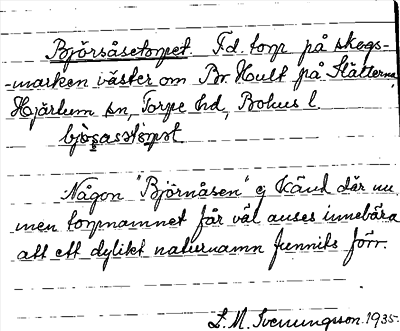 Björsåsetorpet. F.d. torp på skogs-
-marken väster om Br. Hult på Slätterna,
Hjärtum sn, Torpe hd, Bohus l.
bjò̱sasstò̱rpət
Någon "Björnåsen" ej känd där nu
men torpnamnet får väl anses innebära
att ett dylikt naturnamn funnits förr.
L. M. Svenungsson 1935.